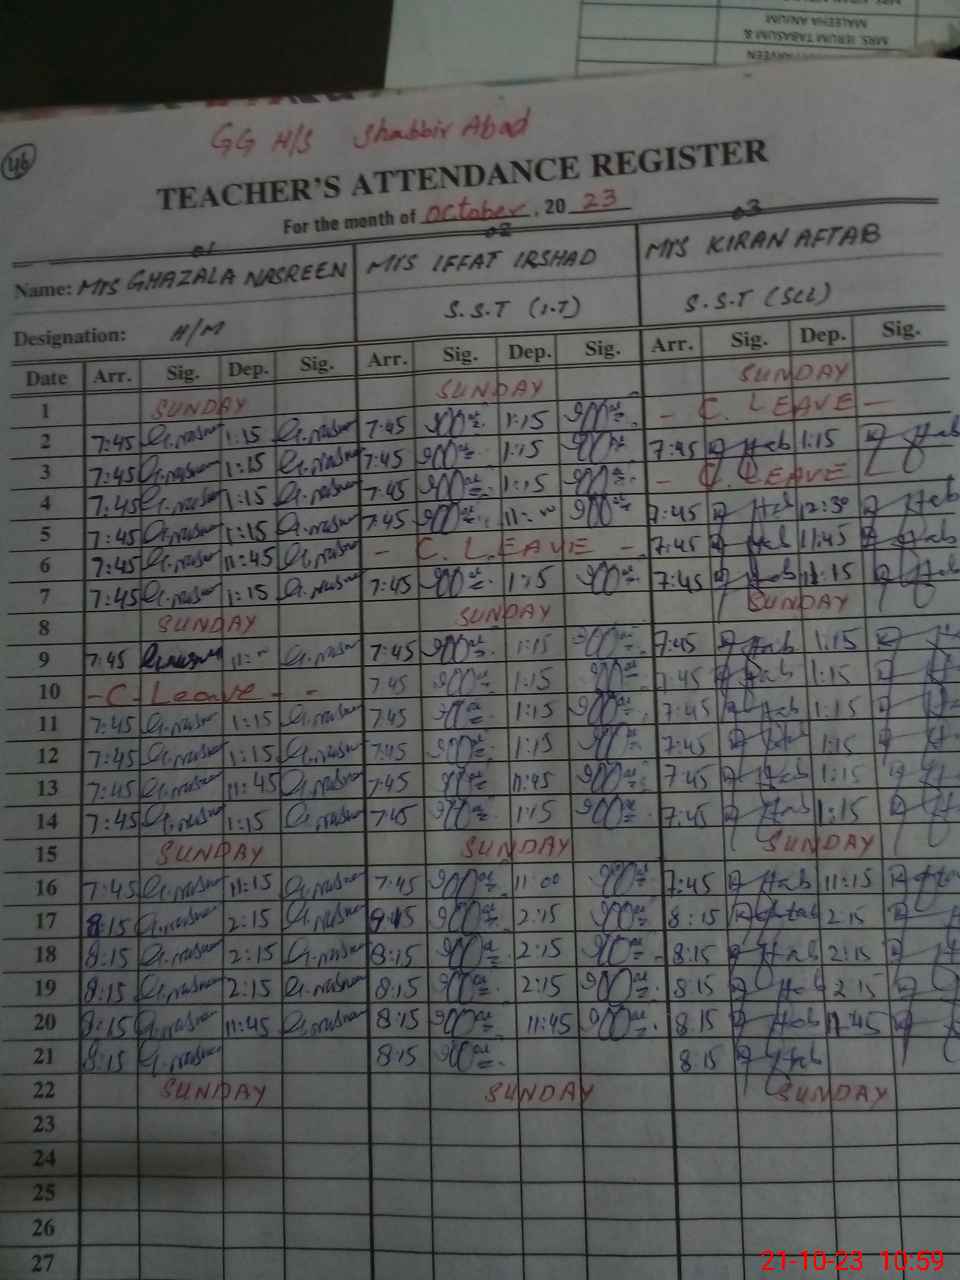 MRS. IERUM TABASUM &
MALEEHA ANJUM
46
GG H/S Shabbir Abad
TEACHER'S ATTENDANCE REGISTER
For the month of October, 20 23
01 02 03
Name: Mrs GHAZALA NASREEN Mrs IFFAT IRSHAD Mrs KIRAN AFTAB
Designation: H/M S.S.T (I.T) S.S.T (Sci)
Date Arr. Sig. Dep. Sig. Arr. Sig. Dep. Sig. Arr. Sig. Dep. Sig.
1 SUNDAY SUNDAY SUNDAY
2 7:45 G.nasreen 1:15 G.nasreen 7:45 1:15 - C. LEAVE -
3 7:45 G.nasreen 1:15 G.nasreen 7:45 1:15 7:45 Aftab 1:15 Aftab
4 7:45 G.nasreen 1:15 G.nasreen 7:45 1:15 - C. LEAVE
5 7:45 G.nasreen 1:15 G.nasreen 7:45 11:00 7:45 Aftab 12:30 Aftab
6 7:45 G.nasreen 11:45 G.nasreen - C. LEAVE - 7:45 Aftab 11:45 Aftab
7 7:45 G.nasreen 1:15 G.nasreen 7:45 1:15 7:45 Aftab 1:15 Aftab
8 SUNDAY SUNDAY SUNDAY
9 7:45 G.nasreen 11:00 G.nasreen 7:45 1:15 7:45 Aftab 1:15
10 - C. Leave - - 7:45 1:15 7:45 Aftab 1:15
11 7:45 G.nasreen 1:15 G.nasreen 7:45 1:15 7:45 Aftab 1:15
12 7:45 G.nasreen 1:15 G.nasreen 7:45 1:15 7:45 Aftab 1:15
13 7:45 G.nasreen 11:45 G.nasreen 7:45 11:45 7:45 Aftab 1:15
14 7:45 G.nasreen 1:15 G.nasreen 7:45 1:15 7:45 Aftab 1:15
15 SUNDAY SUNDAY SUNDAY
16 7:45 G.nasreen 11:15 G.nasreen 7:45 11:00 7:45 Aftab 11:15 Aftab
17 8:15 G.nasreen 2:15 G.nasreen 2:15 8:15 Aftab 2:15
18 8:15 G.nasreen 2:15 G.nasreen 8:15 2:15 8:15 Aftab 2:15
19 8:15 G.nasreen 2:15 G.nasreen 8:15 2:15 8:15 Aftab 2:15
20 8:15 G.nasreen 11:45 G.nasreen 8:15 11:45 8:15 Aftab 11:45
21 8:15 G.nasreen 8:15 8:15 Aftab
22 SUNDAY SUNDAY SUNDAY
23
24
25
26
27
21-10-23 10:59